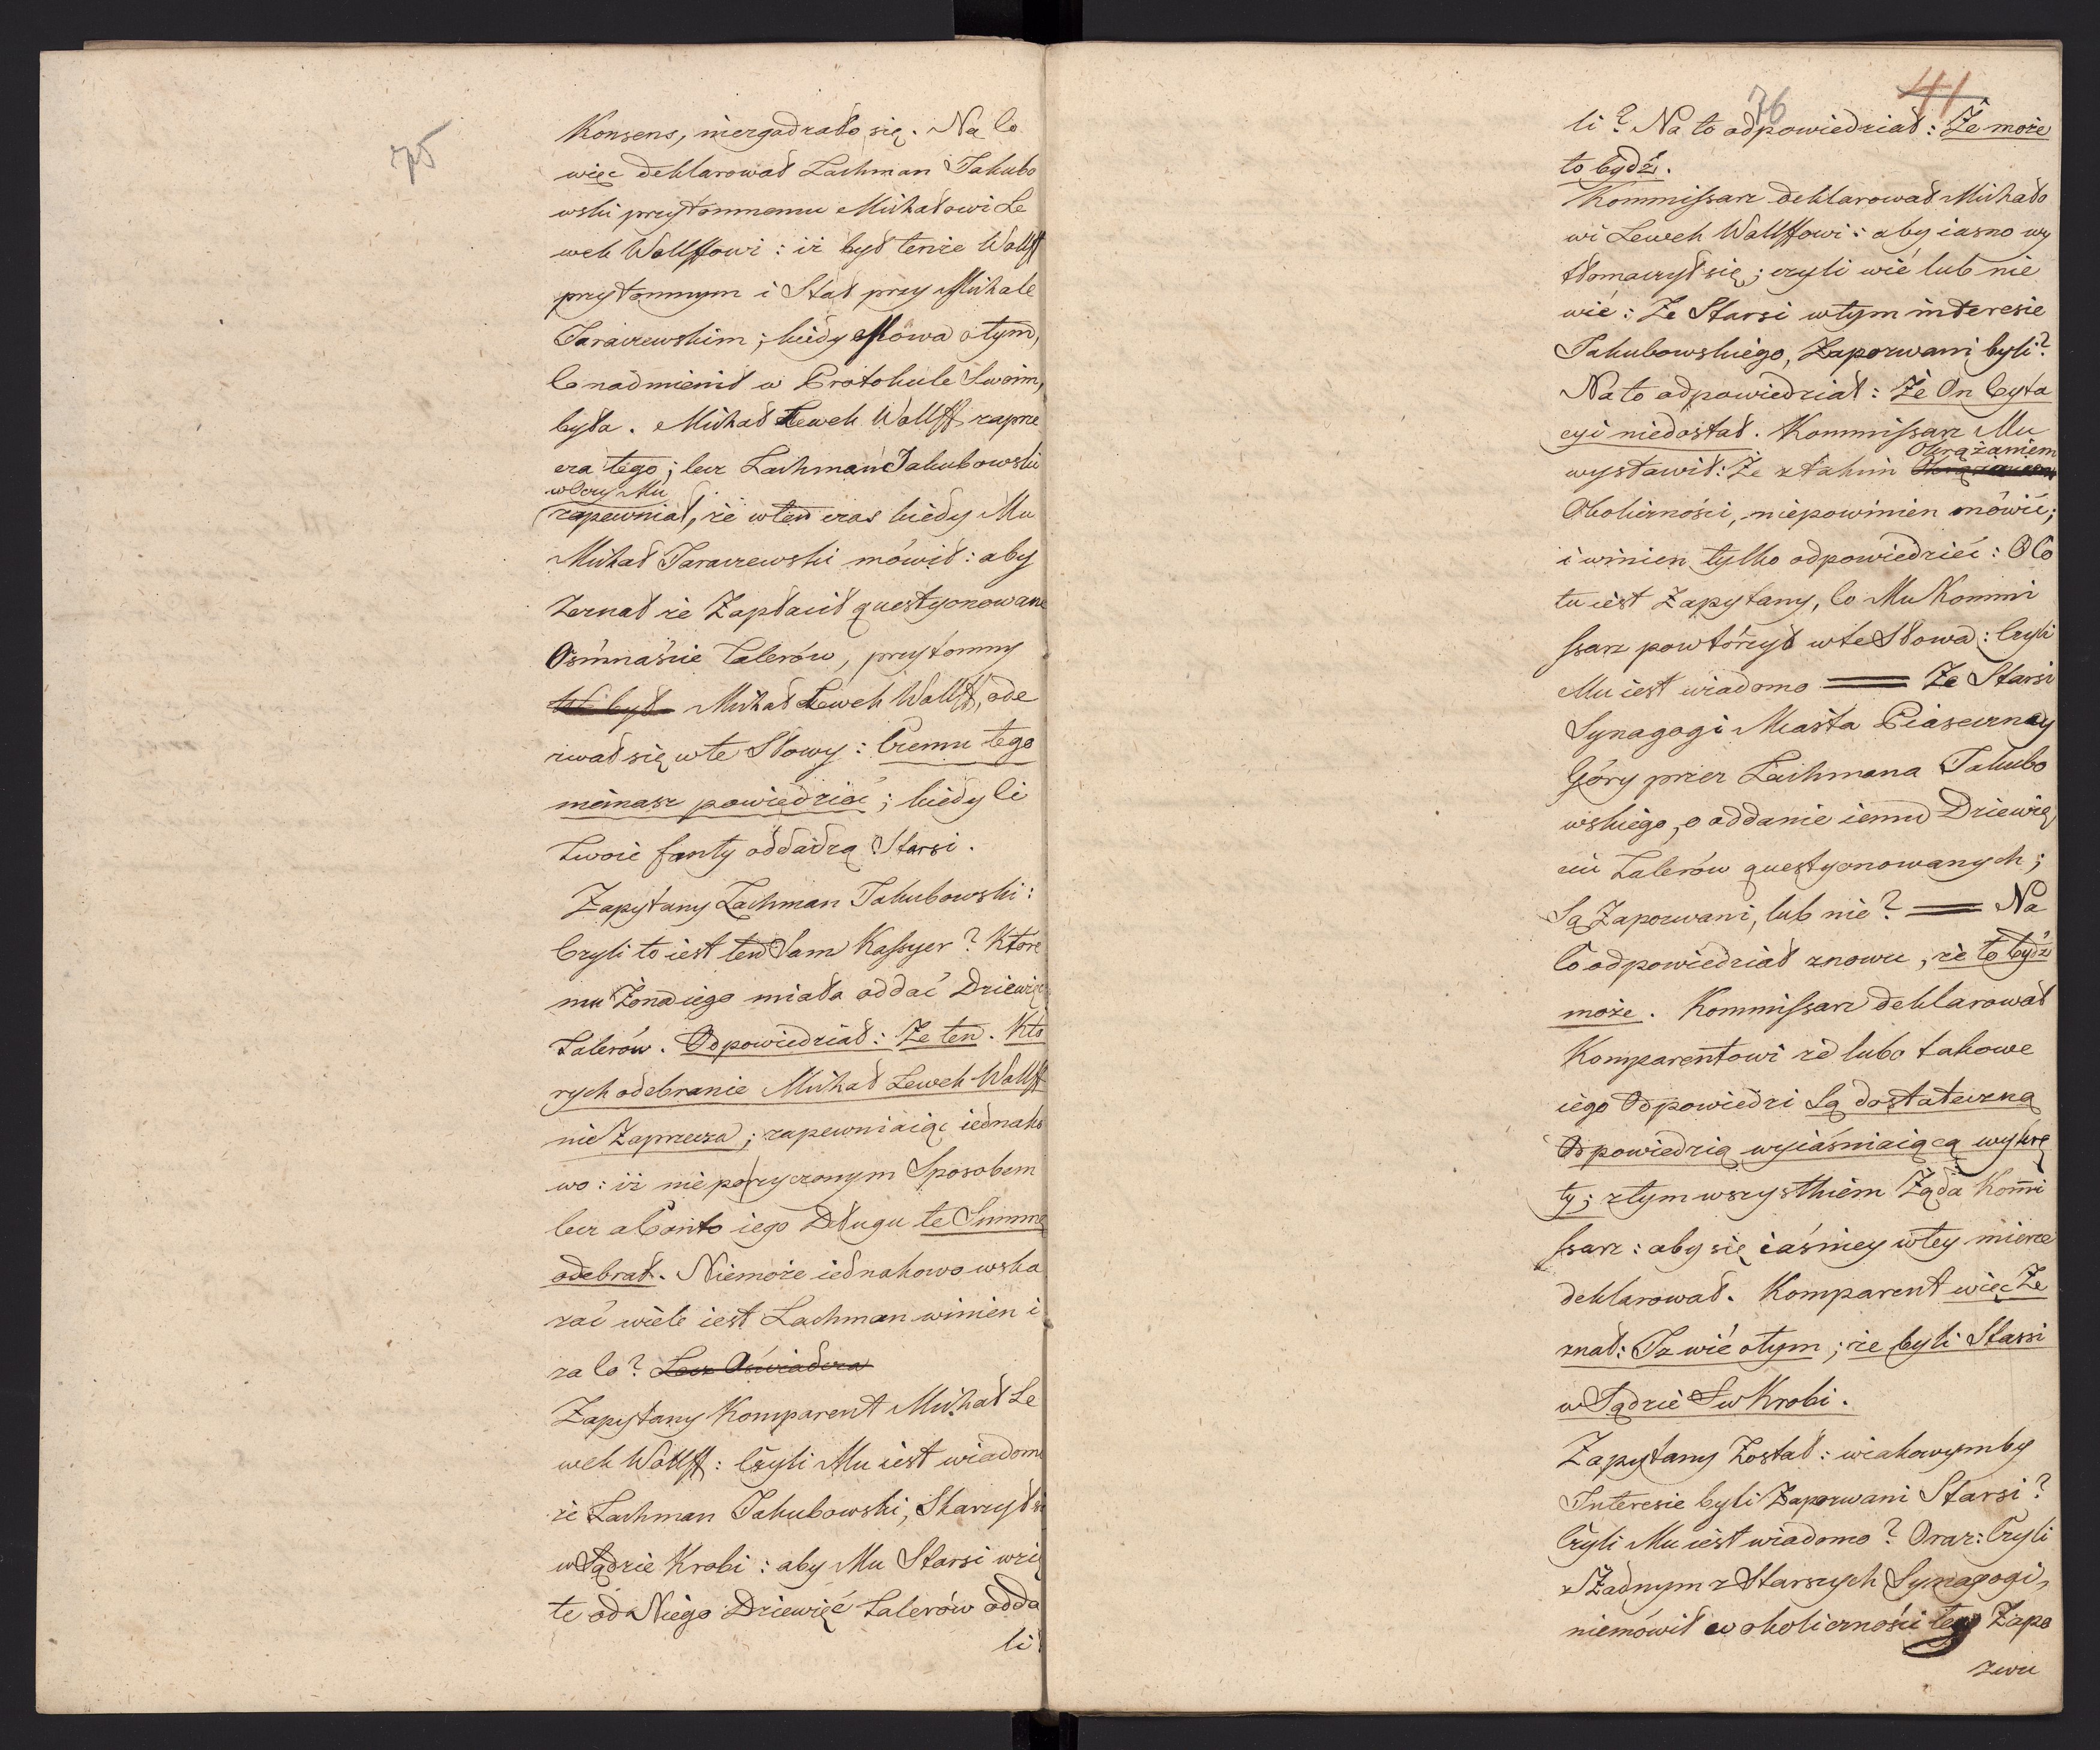 75
Konsens, niezgadzało się. Na Co
więc deklarował Lachman Jakubo
wski przytomnemu Michałowi Le
wek Wolffowi: iż był tenże Wolff
przytomnym i Stał przy Michale
Jaraczewskim; kiedy Mowa o tym,
Co nadmienił w Protokule Swoim,
była. Michał Lewek Wolff zaprze
cza tego; lecz Lachman Jakubowski
w Oczy Mu
zapewniał, że w ten czas kiedy Mu
Michał Jaraczewski mówił: aby
Zeznał że Zapłacił questyonowane
Ośmnaście Talerów, przytomny
Michał Lewek Wolff, ode
zwał się w te Słowy: Czemu tego
niemasz powiedzieć; kiedy Ci
Twoie fanty oddadzą Starsi.
Zapytany Lachman Jakubowski:
Czyli to iest ten Sam Kassyer? Które
mu Żona iego miała oddać Dziewięć
Talerów. Odpowiedział: Że ten. Któ
rych odebranie Michał Lewek Wolff
nie Zaprzecza; zapewniaiąc iednako
wo: iż nie pożyczonym Sposobem
lecz a Conto iego Długu te Summę
odebrał. Niemoże iednakowo wska
zać wiele iest Lachman winien i
za Co? Lecz Oświadcza
Zapytany Komparent Michał Le
wek Wolff: Czyli Mu iest wiadomo
że Lachman Jakubowski, Skarzył się
w Sądzie Krobi: aby Mu Starsi wzię
te od Niego Dziewięć Talerów odda
li
76
41
li? Na to odpowiedział: Że może
to bydź.
Kommissarz deklarował Michało
wi Lewek Wolffowi: aby iasno wy
tłomaczył się; czyli wié lub nie
wié: Że Starsi w tym interesie
Jakubowskiego, Zapozwani byli?
Na to odpowiedział: Że On Cyta
cyi niedostał. Kommissarz Mu
Okrążaniem
wystawił: Że z takim
Okoliczności, niepowinien mówić;
i winien tylko odpowiedzieć: O Co
tu iest Zapytany, Co Mu Kommi
ssarz powtórzył w te Słowa: Czyli
Mu iest wiadomo = Że Starsi
Synagogi Miasta Piaseczney
Góry przez Lachmana Jakubo
wskiego, o oddanie iemu Dziewię
ciu Talerów questyonowanych;
Są Zapozwani, lub nie? = Na
Co odpowiedział znowu, że to bydź
może. Kommissarz deklarował
Komparentowi że lubo takowe
iego Odpowiedzi Są dostateczną
Odpowiedzią wyiaśniaiącą wykrę
ty; z tym wszystkiem Żąda Kommi
ssarz: aby się iaśniey w tey mierze
deklarował. Komparent więc Ze
znał: Iz wié o tym; że byli Starsi
w Sądzie Sw Krobi.
Zapytany Został: w iakowym by
Interesie byli Zapozwani Starsi?
Czyli Mu iest wiadomo? Oraz: Czyli
z Żadnym z Starszych Synagogi,
niemówił w okoliczności tego Zapo
zwu